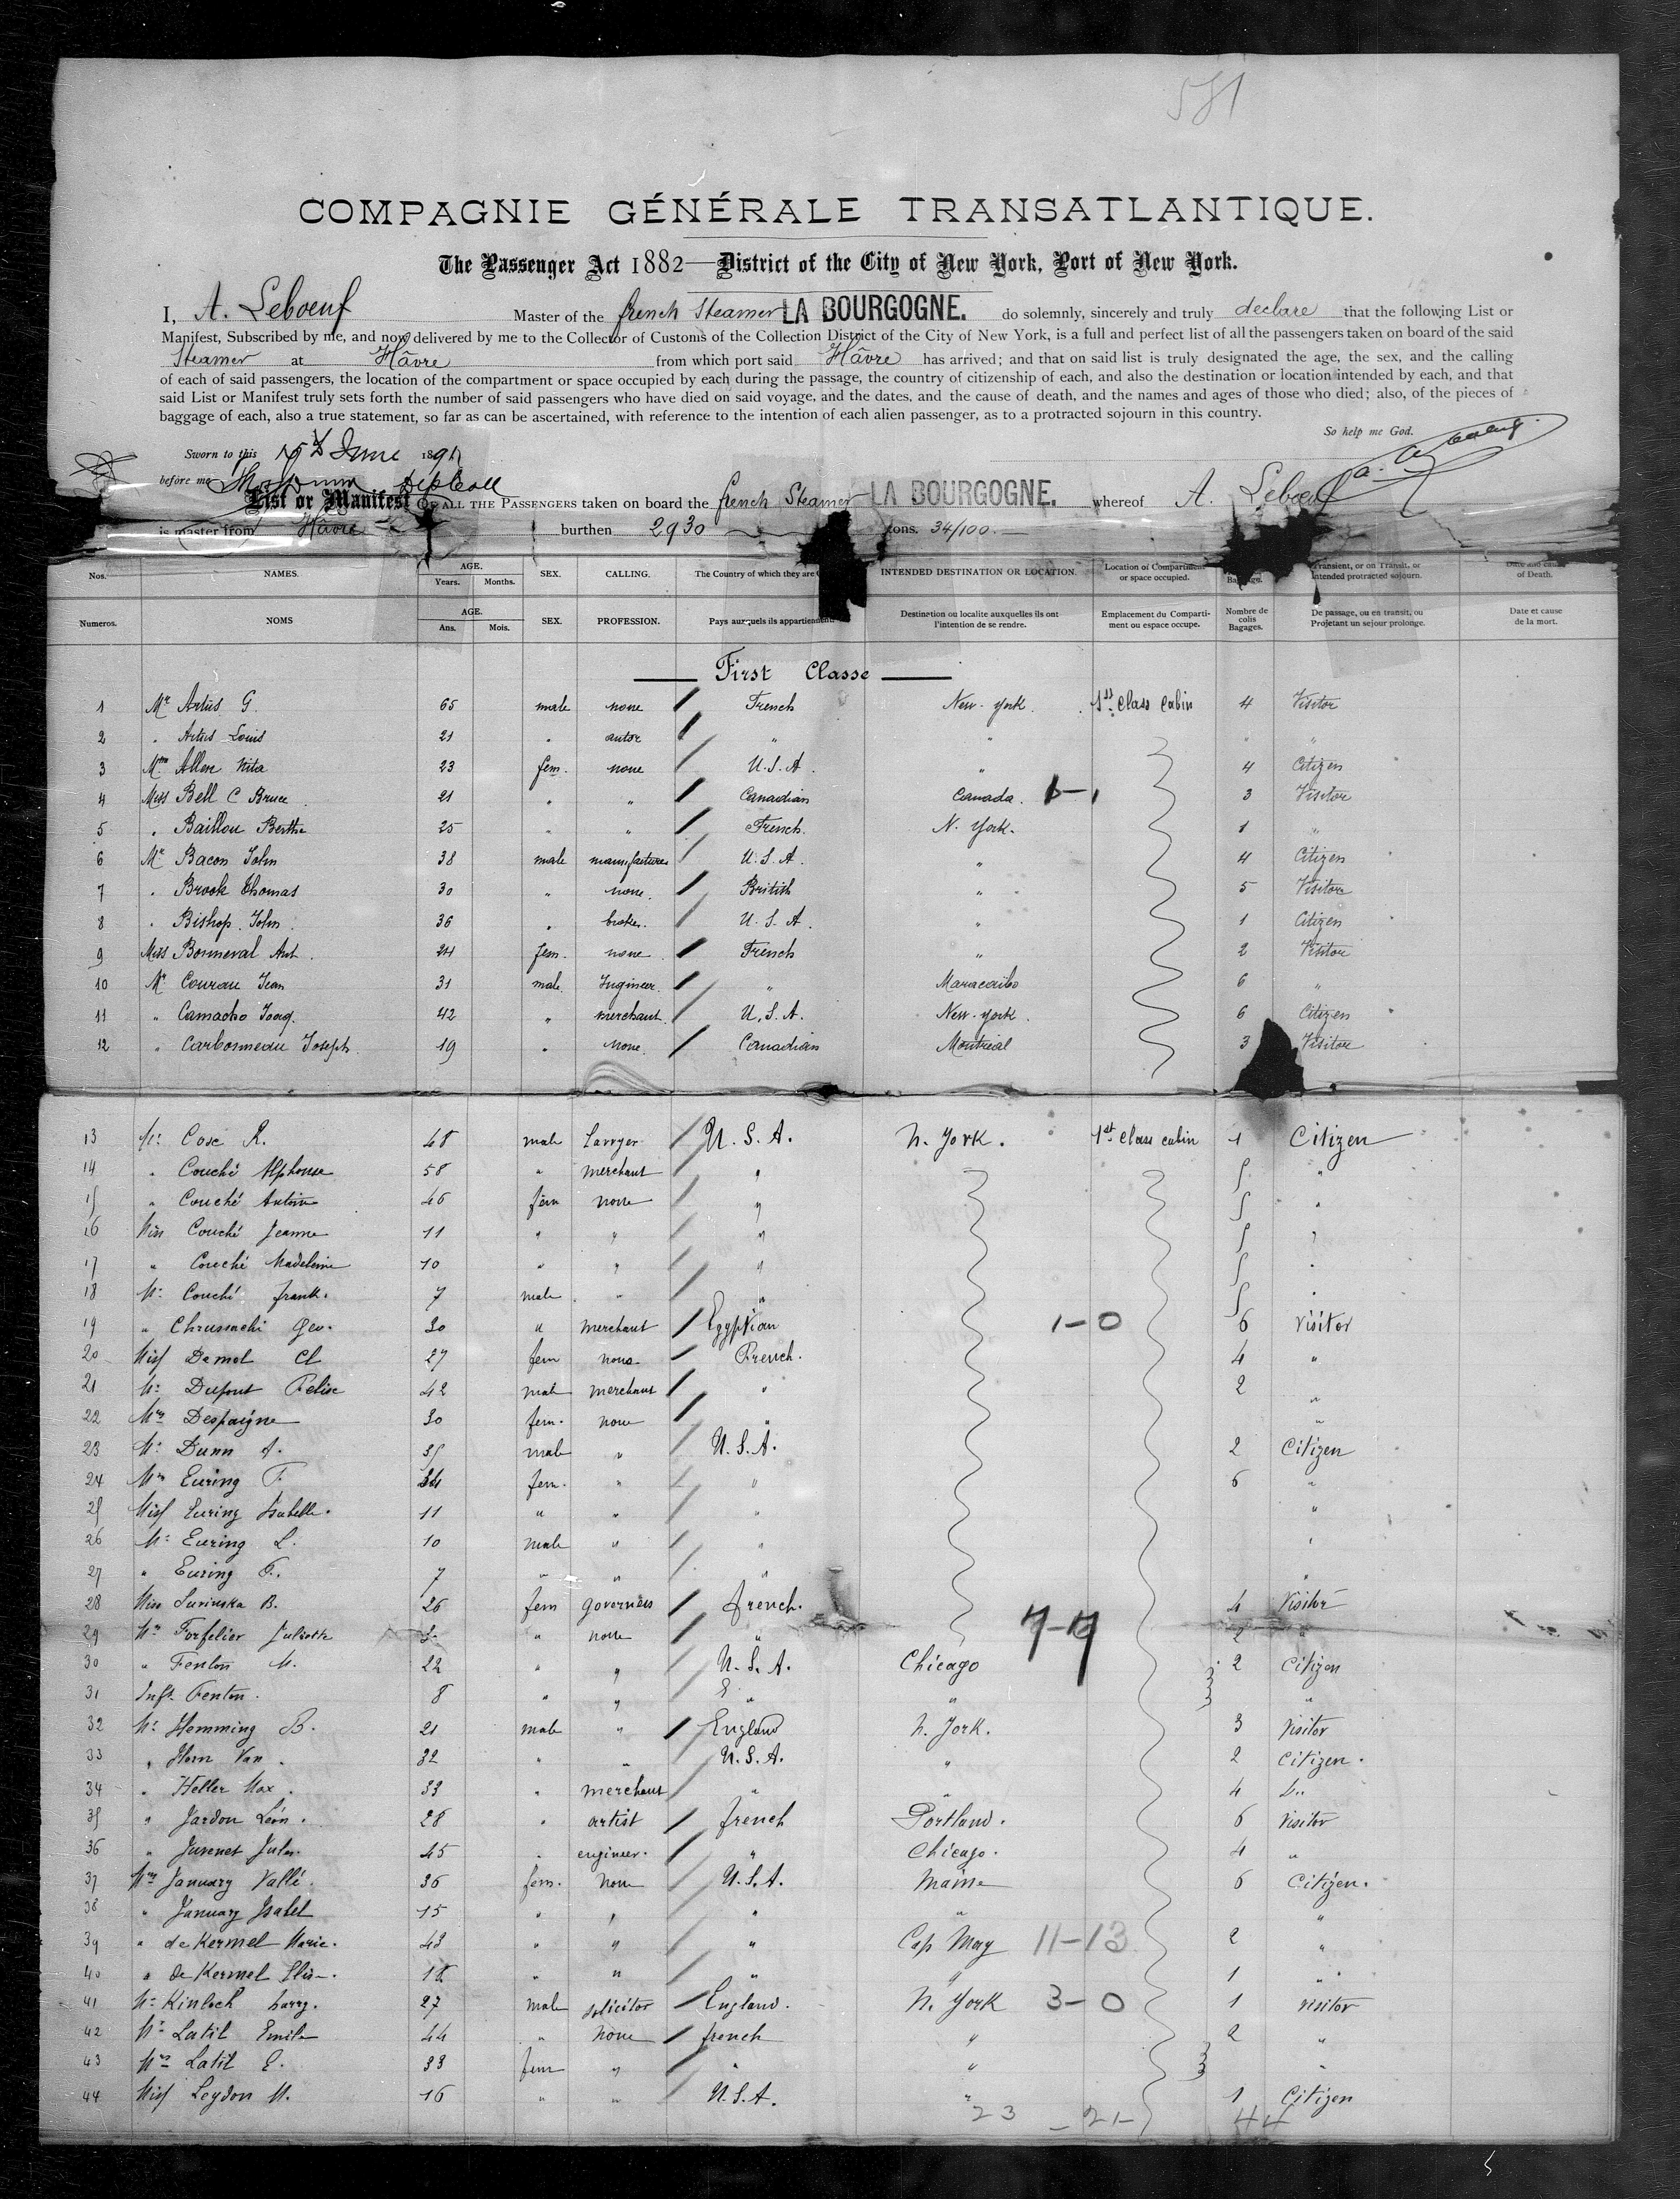 581
COMPAGNIE GÉNÉRALE TRANSATLANTIQUE.
The Passenger Act 1882—District of the City of New York, Port of New York.
I, A. Leboeuf Master of the french Steamer LA BOURGOGNE. do solemnly, sincerely and truly declare that the following List or
Manifest, Subscribed by me, and now delivered by me to the Collector of Customs of the Collection District of the City of New York, is a full and perfect list of all the passengers taken on board of the said
Steamer at Hâvre from which port said Hâvre has arrived; and that on said list is truly designated the age, the sex, and the calling
of each of said passengers, the location of the compartment or space occupied by each during the passage, the country of citizenship of each, and also the destination or location intended by each, and that
said List or Manifest truly sets forth the number of said passengers who have died on said voyage, and the dates, and the cause of death, and the names and ages of those who died; also, of the pieces of
baggage of each, also a true statement, so far as can be ascertained, with reference to the intention of each alien passenger, as to a protracted sojourn in this country.
So help me God.
Sworn to this June 189
before me
List or Manifest OF ALL THE PASSENGERS taken on board the french Steamer LA BOURGOGNE. whereof A. Leboeuf
is master from Hâvre burthen 2930 tons. 34/100.
Nos. NAMES. AGE. Years. Months. SEX. CALLING. The Country of which they are INTENDED DESTINATION OR LOCATION. Location of Compartment or space occupied. Transient, or on Transit, or intended protracted sojourn. Date and cause of Death.
Numeros. NOMS AGE. Ans. Mois. SEX. PROFESSION. Pays auxquels ils appartiennent Destination ou localite auxquelles ils ont l'intention de se rendre. Emplacement du Comparti-ment ou espace occupe. Nombre de colis Bagages. De passage, ou en transit, ou Projetant un sejour prolonge. Date et cause de la mort.
First Classe
1 Mr Artus G. 65 male none French New-york. 1st Class Cabin 4 Visitor
2 " Artus Louis 21 " autor " " " "
3 Mrs Allen Nita 23 fem. none U.S.A. " 4 Citizen
4 Miss Bell C Bruce 21 " " Canadian Canada. 1 3 Visitor
5 " Baillou Berthe 25 " " French. N. York. 1 "
6 Mr Bacon John 38 male manufacturer U.S.A. " 4 Citizen
7 " Brook Thomas 30 " none. British " 5 Visitor
8 " Bishop John 36 " broker. U.S.A. " 1 Citizen
9 Miss Bonneval Ant. 24 fem. none French " 2 Visitor
10 Mr Courau Jean 31 male Ingineer. " Maracaibo 6 "
11 " Camacho Joaq. 42 " merchant. U.S.A. New-york. 6 Citizen
12 " Carbonneau Joseph 19 " none. Canadian Montreal 3 Visitor
13 Mr Cose R. 48 male Lawyer U.S.A. N. York. 1st class cabin 1 Citizen
14 " Couché Alphonse 58 " merchant " 5 "
15 " Couché Antoine 46 fem none " 5 "
16 Miss Couché Jeanne 11 " " " 5 "
17 " Couché Madeleine 10 " " " 5 "
18 Mr Couché frank. 7 male " " 5 "
19 " Chrussachi Geo. 30 " merchant Egyptian 1-0 6 Visitor
20 Miss Demol Cl 27 fem none French. 4 "
21 Mr Dupont Felise 42 male merchant " 2 "
22 Mrs Despaigne 30 fem. none " "
23 Mr Dunn A. 35 male " U.S.A. 2 Citizen
24 Mrs Euring F. 34 fem. " " 6 "
25 Miss Euring Isabelle. 11 " " " "
26 Mr Euring L. 10 male " " "
27 " Euring F. 7 " " " "
28 Miss Surinska B. 26 fem governess french. 4 Visitor
29 Mrs Forfelier Juliette " none " 7-17 2 "
30 " Fenton M. 22 " " U.S.A. Chicago 2 Citizen
31 Inft. Fenton. 8 " " " " "
32 Mr Hemming B. 21 male " England N. York. 3 Visitor
33 " Horn Van. 32 " " U.S.A. " 2 Citizen.
34 " Heller Max. 33 " merchant " " 4
35 " Jardon Léon. 28 " artist french Portland. 6 Visitor
36 " Juvenet Jules. 45 " engineer. " Chicago. 4 "
37 Mrs January Vallé. 36 fem. None U.S.A. Maine 6 Citizen.
38 " January Isabel 15 " " " " "
39 " de Kermel Marie. 43 " " " Cap May 11-13 2 "
40 " de Kermel Elise. 18 " " " " 1 "
41 Mr Kinloch harry. 27 male solicitor England. N. York 3-0 1 visitor
42 Mr Latil Emile 44 " None french " 2 "
43 Mrs Latil E. 33 fem " " " "
44 Miss Leydon M. 16 " " U.S.A. " 1 Citizen
23 - 21 44